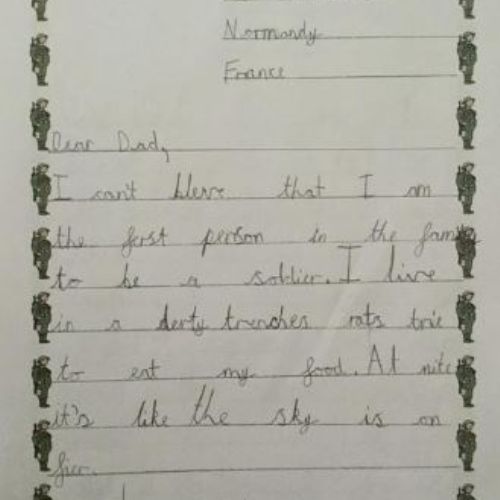 Normandy
France
Dear Dad,
I can't bleve that I am
the ferst person in the family
to be a soldier. I live
in a derty trenches rats trie
to eat my food. At nite
it's like the sky is on
fier.